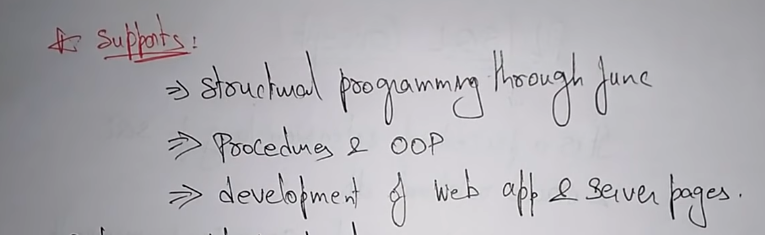 ☆ Supports:
⇒ structural programming through func
⇒ Procedures & OOP
⇒ development of web app & Server pages.